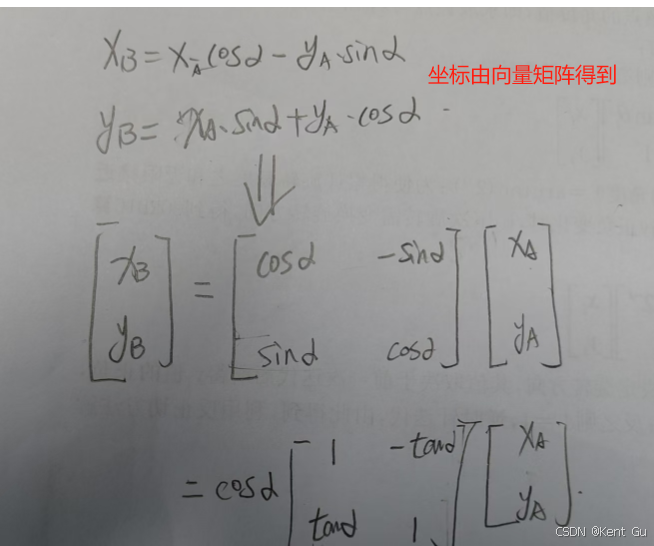 x_B = x_A cosα - y_A·sinα
坐标由向量矩阵得到
y_B = x_A·sinα + y_A·cosα
⇓
[x_B; y_B] = [cosα -sinα; sinα cosα] [x_A; y_A]
= cosα [1 -tanα; tanα 1] [x_A; y_A].
CSDN @Kent Gu